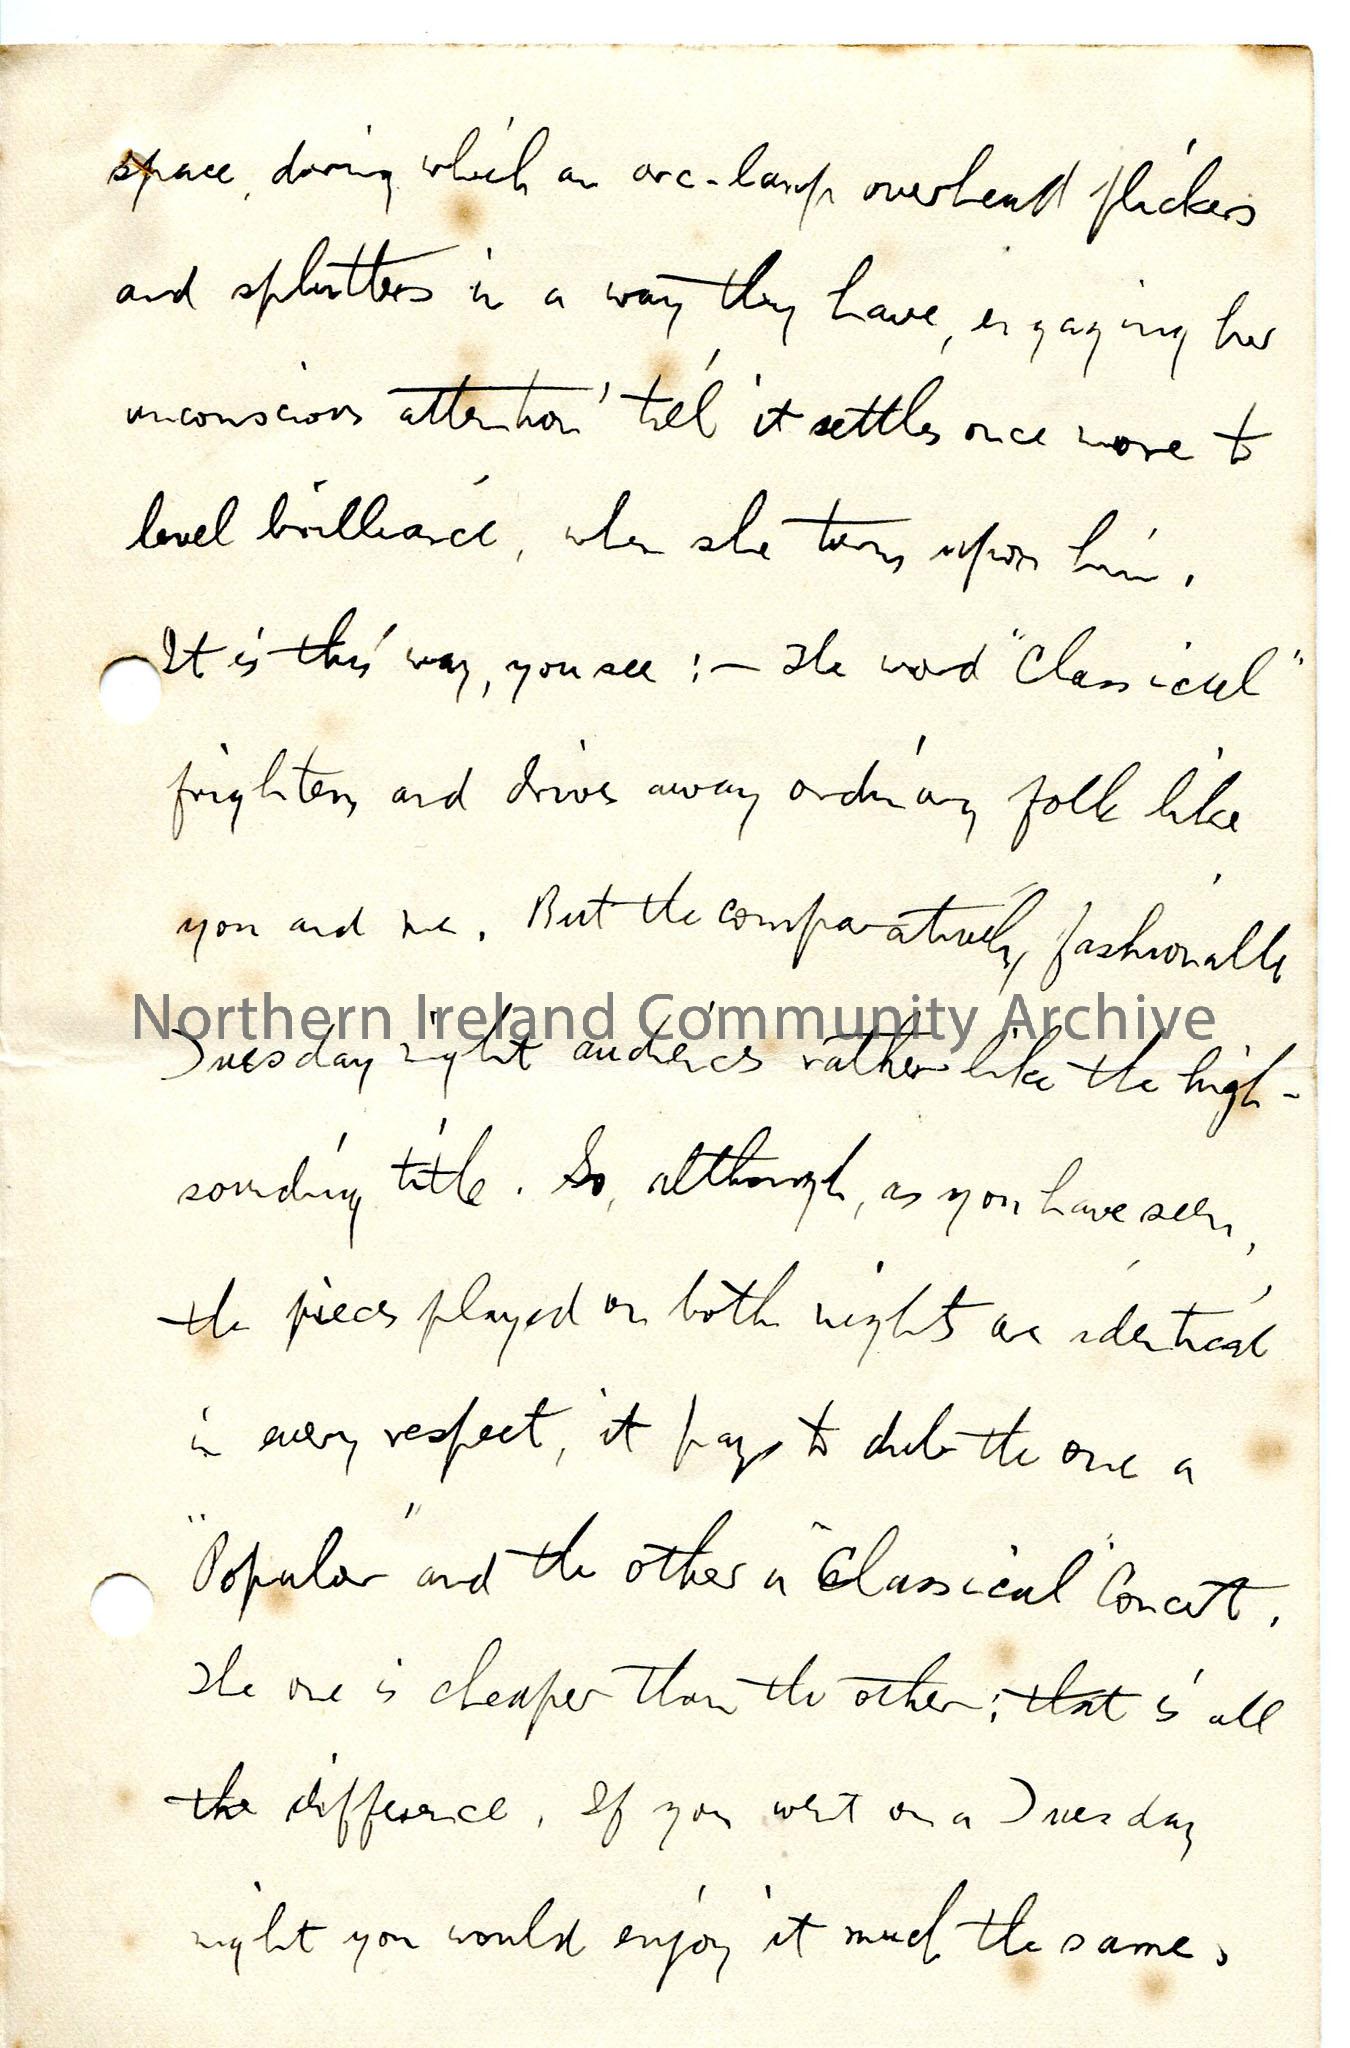 space, during which an arc-lamp overhead flickers
and splutters in a way they have, engaging her
unconscious attention 'till it settles once more to
level brilliance, when she turns upon him.
It is this way, you see :— The word "Classical"
frightens and drives away ordinary folk like
you and me. But the comparatively fashionable
Northern Ireland Community Archive
Tuesday night audiences rather like the high-
sounding title. So, although, as you have seen,
the pieces played on both nights are identical
in every respect, it pays to dub the one a
"Popular" and the other a "Classical" Concert.
The one is cheaper than the other; that is all
the difference. If you went on a Tuesday
night you would enjoy it much the same.